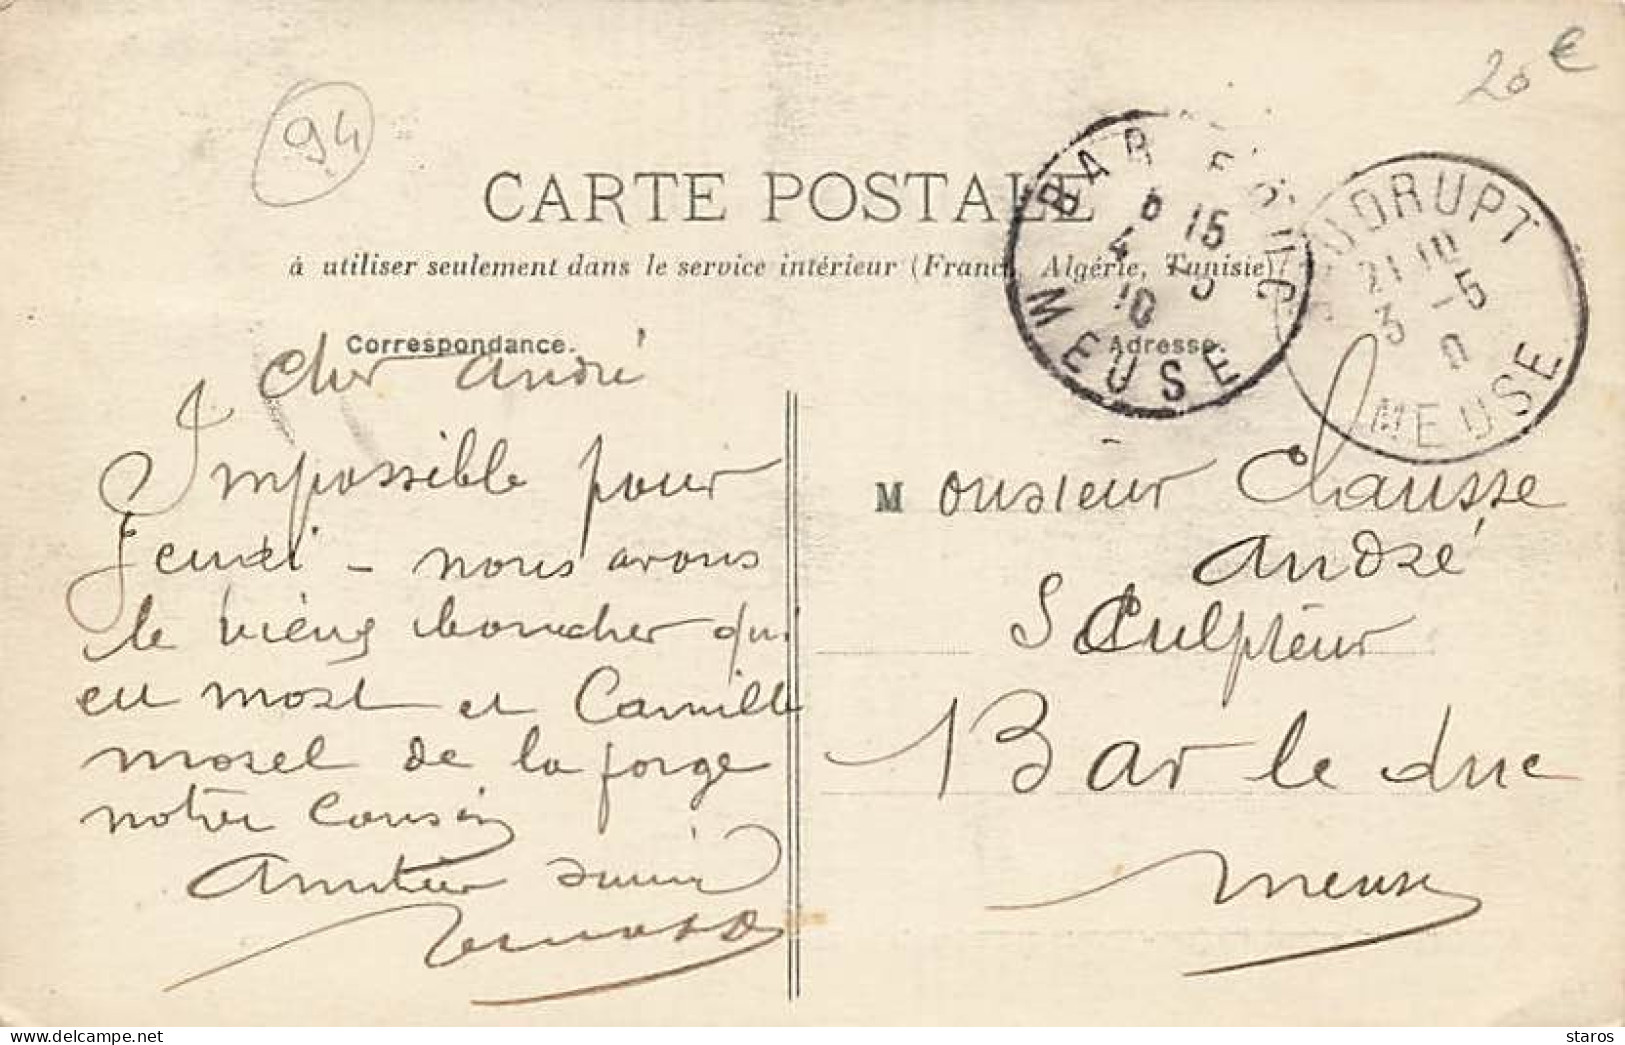 94
20 €
CARTE POSTALE
à utiliser seulement dans le service intérieur (France, Algérie, Tunisie)
BAR LE DUC
6 15
4 5
10
MEUSE
UDRUPT
21 10
3 -5
0
MEUSE
Correspondance.
Adresse.
Cher André
Impossible pour
Jeudi - nous avons
le vieux boucher qui
est mort et Camille
morel de la forge
notre Cousin
Monsieur Chausse
André
Sculpteur
Bar le duc
Meuse
www.delcampe.net
staros